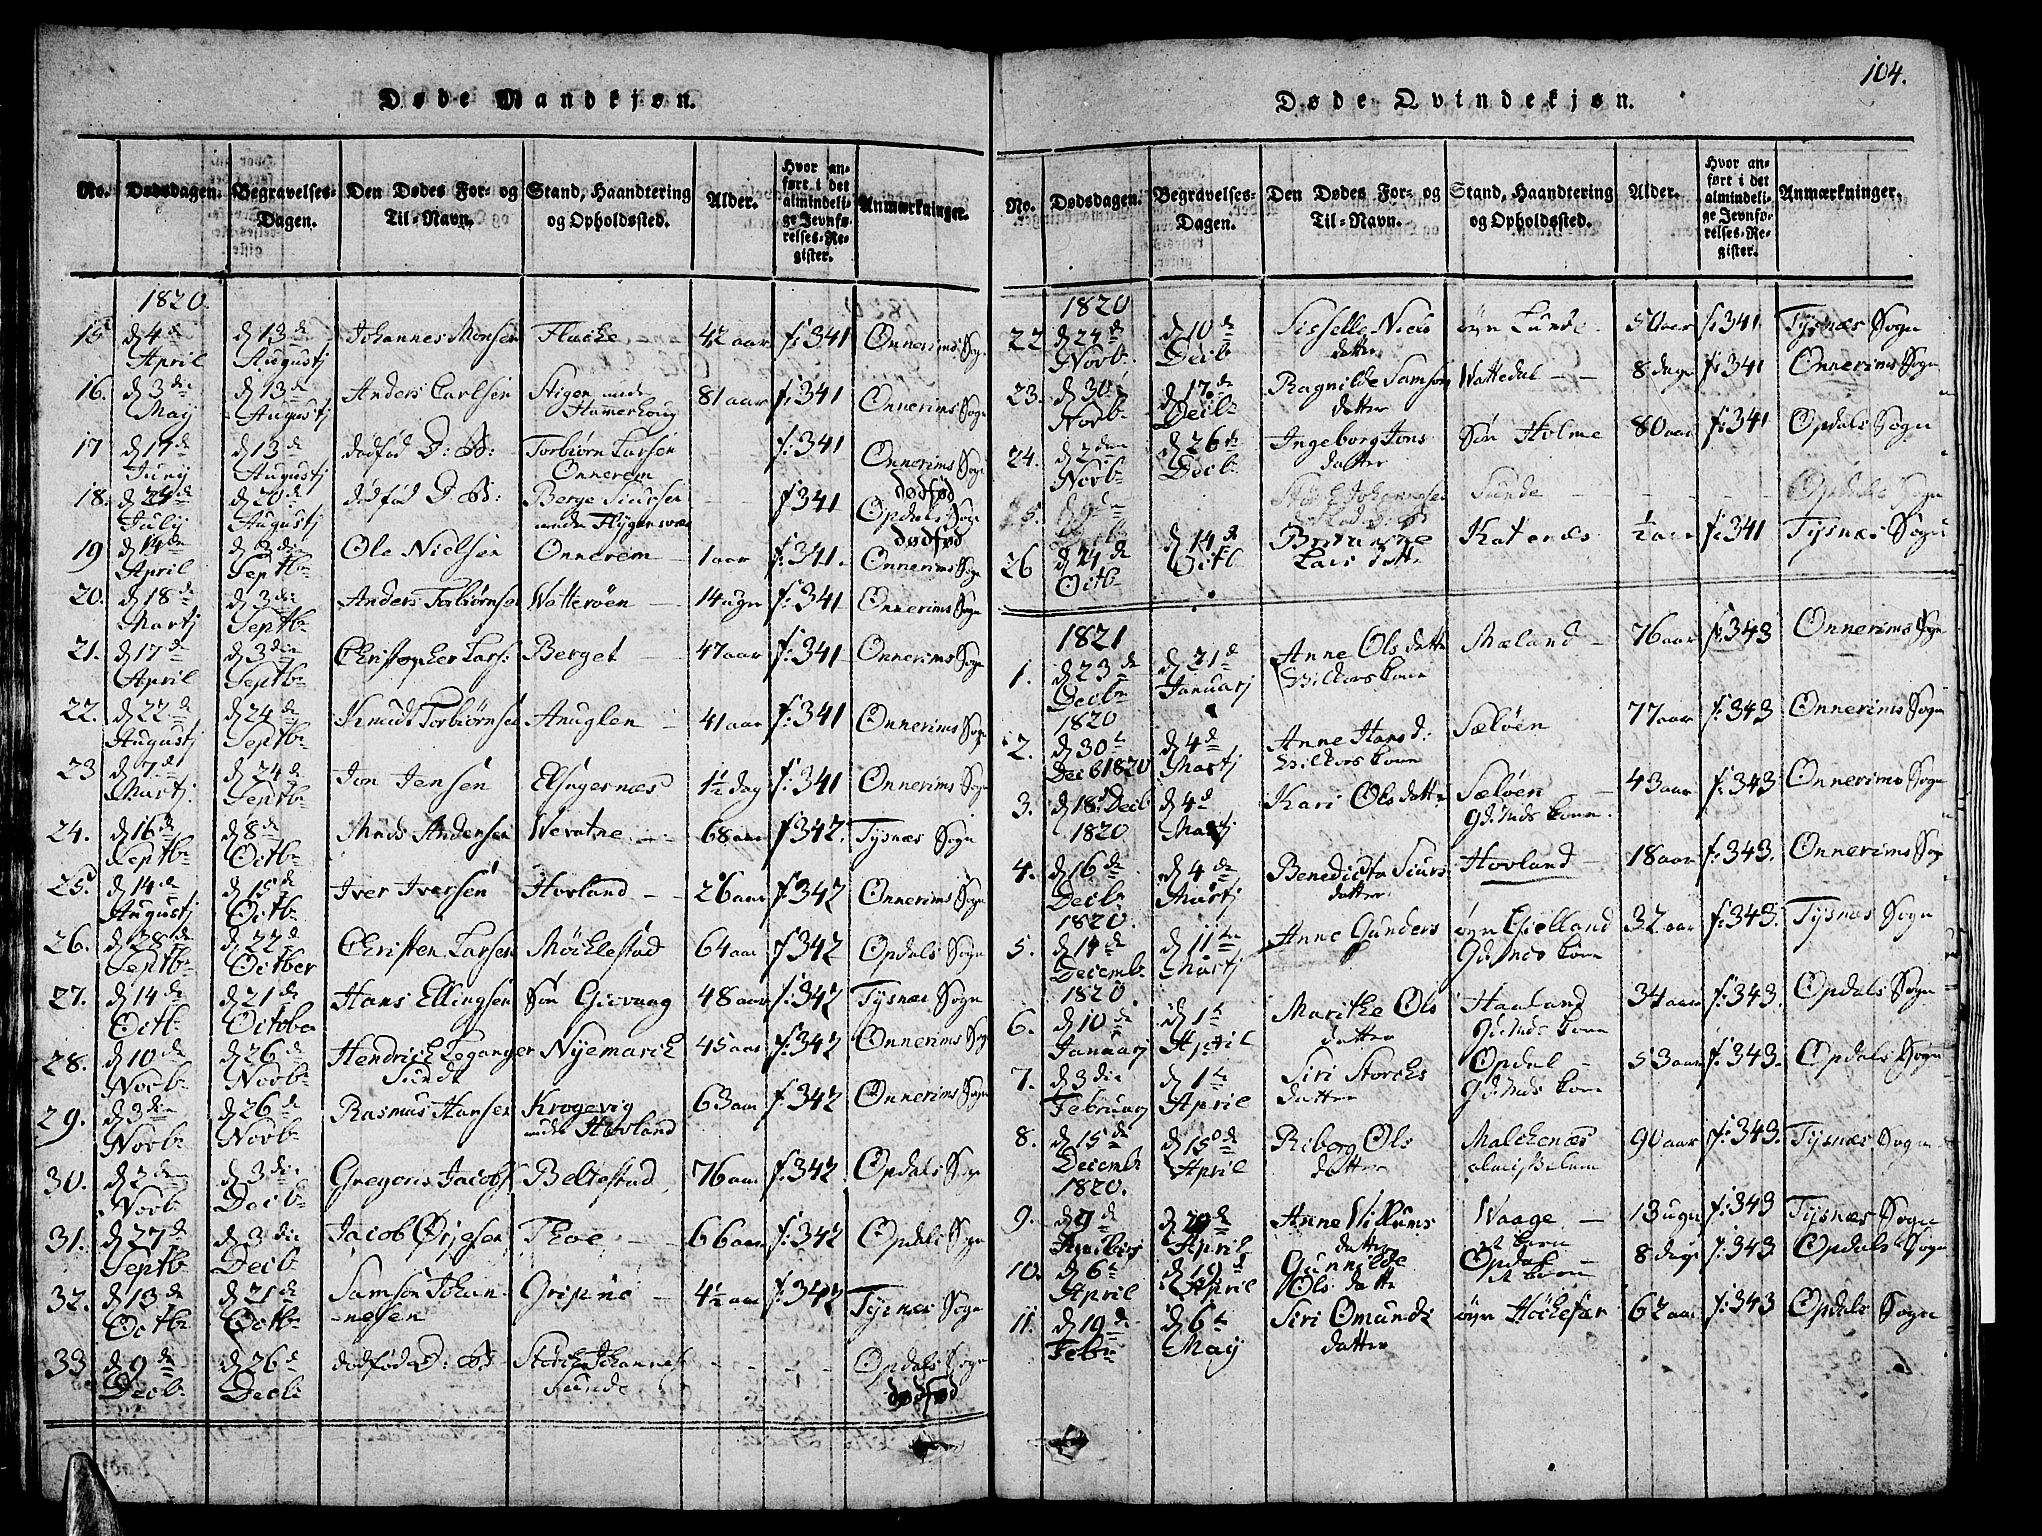 104.
Døde Mandkjøn.
No. Dødsdagen. Begravelses-Dagen. Den Dødes For- og Til-Navn. Stand, Haandtering og Opholdssted. Alder. Hvor anført i det almindelige Jevnførelses-Register. Anmærkninger.
1820.
15 d 4de April d 13de Augustj Johannes Monsen Flache 42 aar f: 341 Onnerims Sogn
16. d 3die May d 13de Augustj Anders Carlsen Stigen under Hamerhoug 81 aar f: 341 Onnerims Sogn
17 Junj d 13de Augustj dødfød D: B: Torbiørn Larsen Onnerem f: 341 Onnerims Sogn dødfød
18. July d 20de Augustj dødfød D: B: Berge under f: 341 Opdals Sogn dødfød
19 d 14de April d 3die Septbr Ole Nielsen Onnerem 1 aar f: 341. Onnerims Sogn
20. d 18de Martj d 3die Septbr Anders Torbiørnsen Watterøen 14 ugr f: 341 Onnerims Sogn
21. d 17de April d 3die Septbr Christopher Lars: Berget 47 aar f: 341 Onnerims Sogn
22. d 22de Augustj d 24de Septbr Knud Torbiørnsen Anuglen 41 aar f: 341 Onnerims Sogn
23 d 7de Martj. d 24de Septbr Jon Jensen Elsagernæs 1½ dag f: 341 Onnerims Sogn
24. d 16de Septbr d 8de Octbr Mads Andersen Wevatne 68 aar f 342. Tysnæs Sogn
25. d 14de Augustj d 15de Octbr Iver Iversen Hovland 26 aar f: 342 Onnerims Sogn
26. d 28de Septbr d 22de October Christen Larsen Møchlestad 64 aar f 342 Opdals Sogn
27. d 14de Octbr d 21de October Hans Ellingsen Søn Gievaag 48 aar f: 342 Tysnæs Sogn
28. d 10de Novbr d 26de Novbr Hendrich Leganger Sundt Nyemarch 45 aar f: 342 Onnerims Sogn
29. d 3die Novbr d 26de Novbr Rasmus Hansen Krogevig under Hovland 63 aar f: 342 Onnerims Sogn
30. d 2den Novbr d 3die Decbr Gregorius Jacobs: Beltestad 76 aar f: 342. Opdals Sogn
31. d 27de Septbr d 3die Decbr Jacob Ørjesen Thoe 66 aar f: 342 Opdals Sogn
32. d 13de Octbr d 21de Octbr Samson Johannesen Gripne 4½ aar f: 342 Tysnæs Sogn
33. d 9de Decbr d 26de Decbr dødfød D: B: Storch Johannes: Sunde Opdals Sogn dødfød
Døde Qvindekjøn.
No. Dødsdagen. Begravelses-Dagen. Den Dødes For- og Til-Navn. Stand, Haandtering og Opholdssted. Alder. Hvor anført i det almindelige Jevnførelses-Register. Anmærkninger.
1820
22 d 24de Novbr d 10de Decbr Sisselle datter øyr Lunde 50 aar f: 341 Tysnæs Sogn
23. d 30te Novbr d 17de Decbr Ragnilde Samsons datter Wattedal 8 dage f: 341 Onnerims Sogn
24. d 2den Novbr d 26de Decbr Ingeborg Jons datter Søn Holme 80 aar f: 341 Opdals Sogn
25. Johannesen Sunde Opdals Sogn
26 d 24de Octbr d 14de Octb Lars datter Katenæs ½ aar f: 341 Tysnæs Sogn
1821
1. d 23de Decbr 1820 d 21de Januarj Anne Olsdatter Vilkorskone Mæland 76 aar f: 343 Onnerims Sogn
2. d 30te Decb 1820 d 4de Martj Anne Hansd: Vilkorskone Sæløen 77 aar f: 343 Onnerims Sogn
3. d 18de Decb 1820. d 4de Martj Kari Olsdatter Sæløen Gdmds kone. 43 aar f: 343 Onnerims Sogn
4. d 16de Decbr 1820. d 4de Martj Benedicta Siurs datter Hovland 18 aar f: 343. Onnerims Sogn
5. d 14de Decembr 1820. d 11te Martj Anne Gunders øyr Gielland Gdmds kone 32 aar f: 343. Tysnæs Sogn
6. d 10de Januarj d 1te April Marithe Ols datter Haaland Gdmds kone 34 aar f: 343. Opdals Sogn
7. d 3die Februarj d 1te April Siri Storchs datter Opdal Gdmds kone 53 aar f: 343. Opdals Sogn
8. d 15de Decembr 1820. d 15de April Riborg Ols datter Malchenæs almisselem 90 aar f: 343. Tysnæs Sogn
9. d 9de April Anne Willums datter Waage et barn 13 ugr f: 343 Tysnæs Sogn
10. d 6te April d 19de April Gunnilde Ols datter Opdal et barn 8 dage f: 343 Opdals Sogn
11. d 19de Febr d 6te May Siri Omunds datter øyr Høchefær 62 aar f: 343 Opdals Sogn